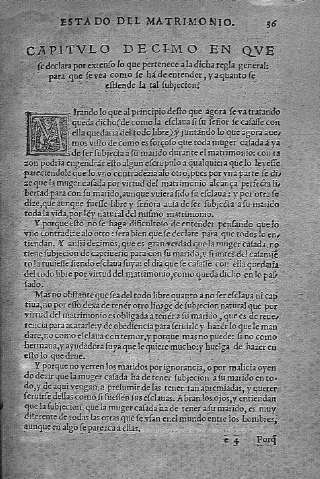 ESTADO DEL MATRIMONIO. 36
CAPITVLO DECIMO EN QVE
se declara por extenso lo que pertenece a la dicha regla general:
para que se vea como se ha de entender, y a quanto se
estiende la tal subjecion.
MIrando lo que al principio desto que agora se va tratando
queda dicho, de como la esclaua si su señor se casasse con
ella quedaria del todo libre, y juntando lo que agora aue-
mos visto de como es forçoso que toda muger casada aya
de ser subjecta a su marido durante el matrimonio: con ra
zon podria engendrar esto algun escrupulo a qualquiera que lo leyesse
pareciendole que lo vno contradezia a lo otro, pues por vna parte se di-
ze que la muger casada por virtud del matrimonio alcança perfecta li-
bertad para con su marido, aunque vuiera sido su esclaua: y por otra se
dize, que aunque fuesse libre y señora aura de ser subjecta a su marido
toda la vida, por ley natural del mismo matrimonio.
Y porque esto no se haga dificultoso de entender pensando que lo
vno contradize a lo otro sera bien que se declare para que todos lo en-
tiendan. Y assi dezimos, que es gran verdad que la muger casada no
tiene subjecion de captiuerio para con su marido, y si antes del casamiẽ
to la tuuiesse siendo esclaua suya: el dia que se casasse con ella quedaria
del todo libre por virtud del matrimonio, como queda dicho en lo pas-
sado.
Mas no obstante que sea del todo libre quanto a no ser esclaua ni cap
tiua, no por esso dexa de tener otro linage de subjecion natural que por
virtud del matrimonio es obligada a tener a su marido, que es de reue-
rencia para acatarle: y de obediencia para seruirle y hazer lo que le man
dare, no como esclaua con temor, y porque mas no puede: sino como
hermana, y ayudadora suya que le quiere mucho: y huelga de hazer en
esto lo que deue.
Y porque no yerren los maridos por ignorancia, o por malicia oyen
do dezir que la muger casada ha de tener subjecion a su marido en to-
do, y de aqui vengan a presumir de las tener tan apremiadas, y querer
seruirse dellas como si fuessen sus esclauas. Abran los ojos, y entiendan
que la subjecion que la muger casada ha de tener a su marido, es muy
diferente de todas las otras que se vsan en el mundo entre los hombres,
aunque en algo se parezca a ellas.
e 4 Porq̃